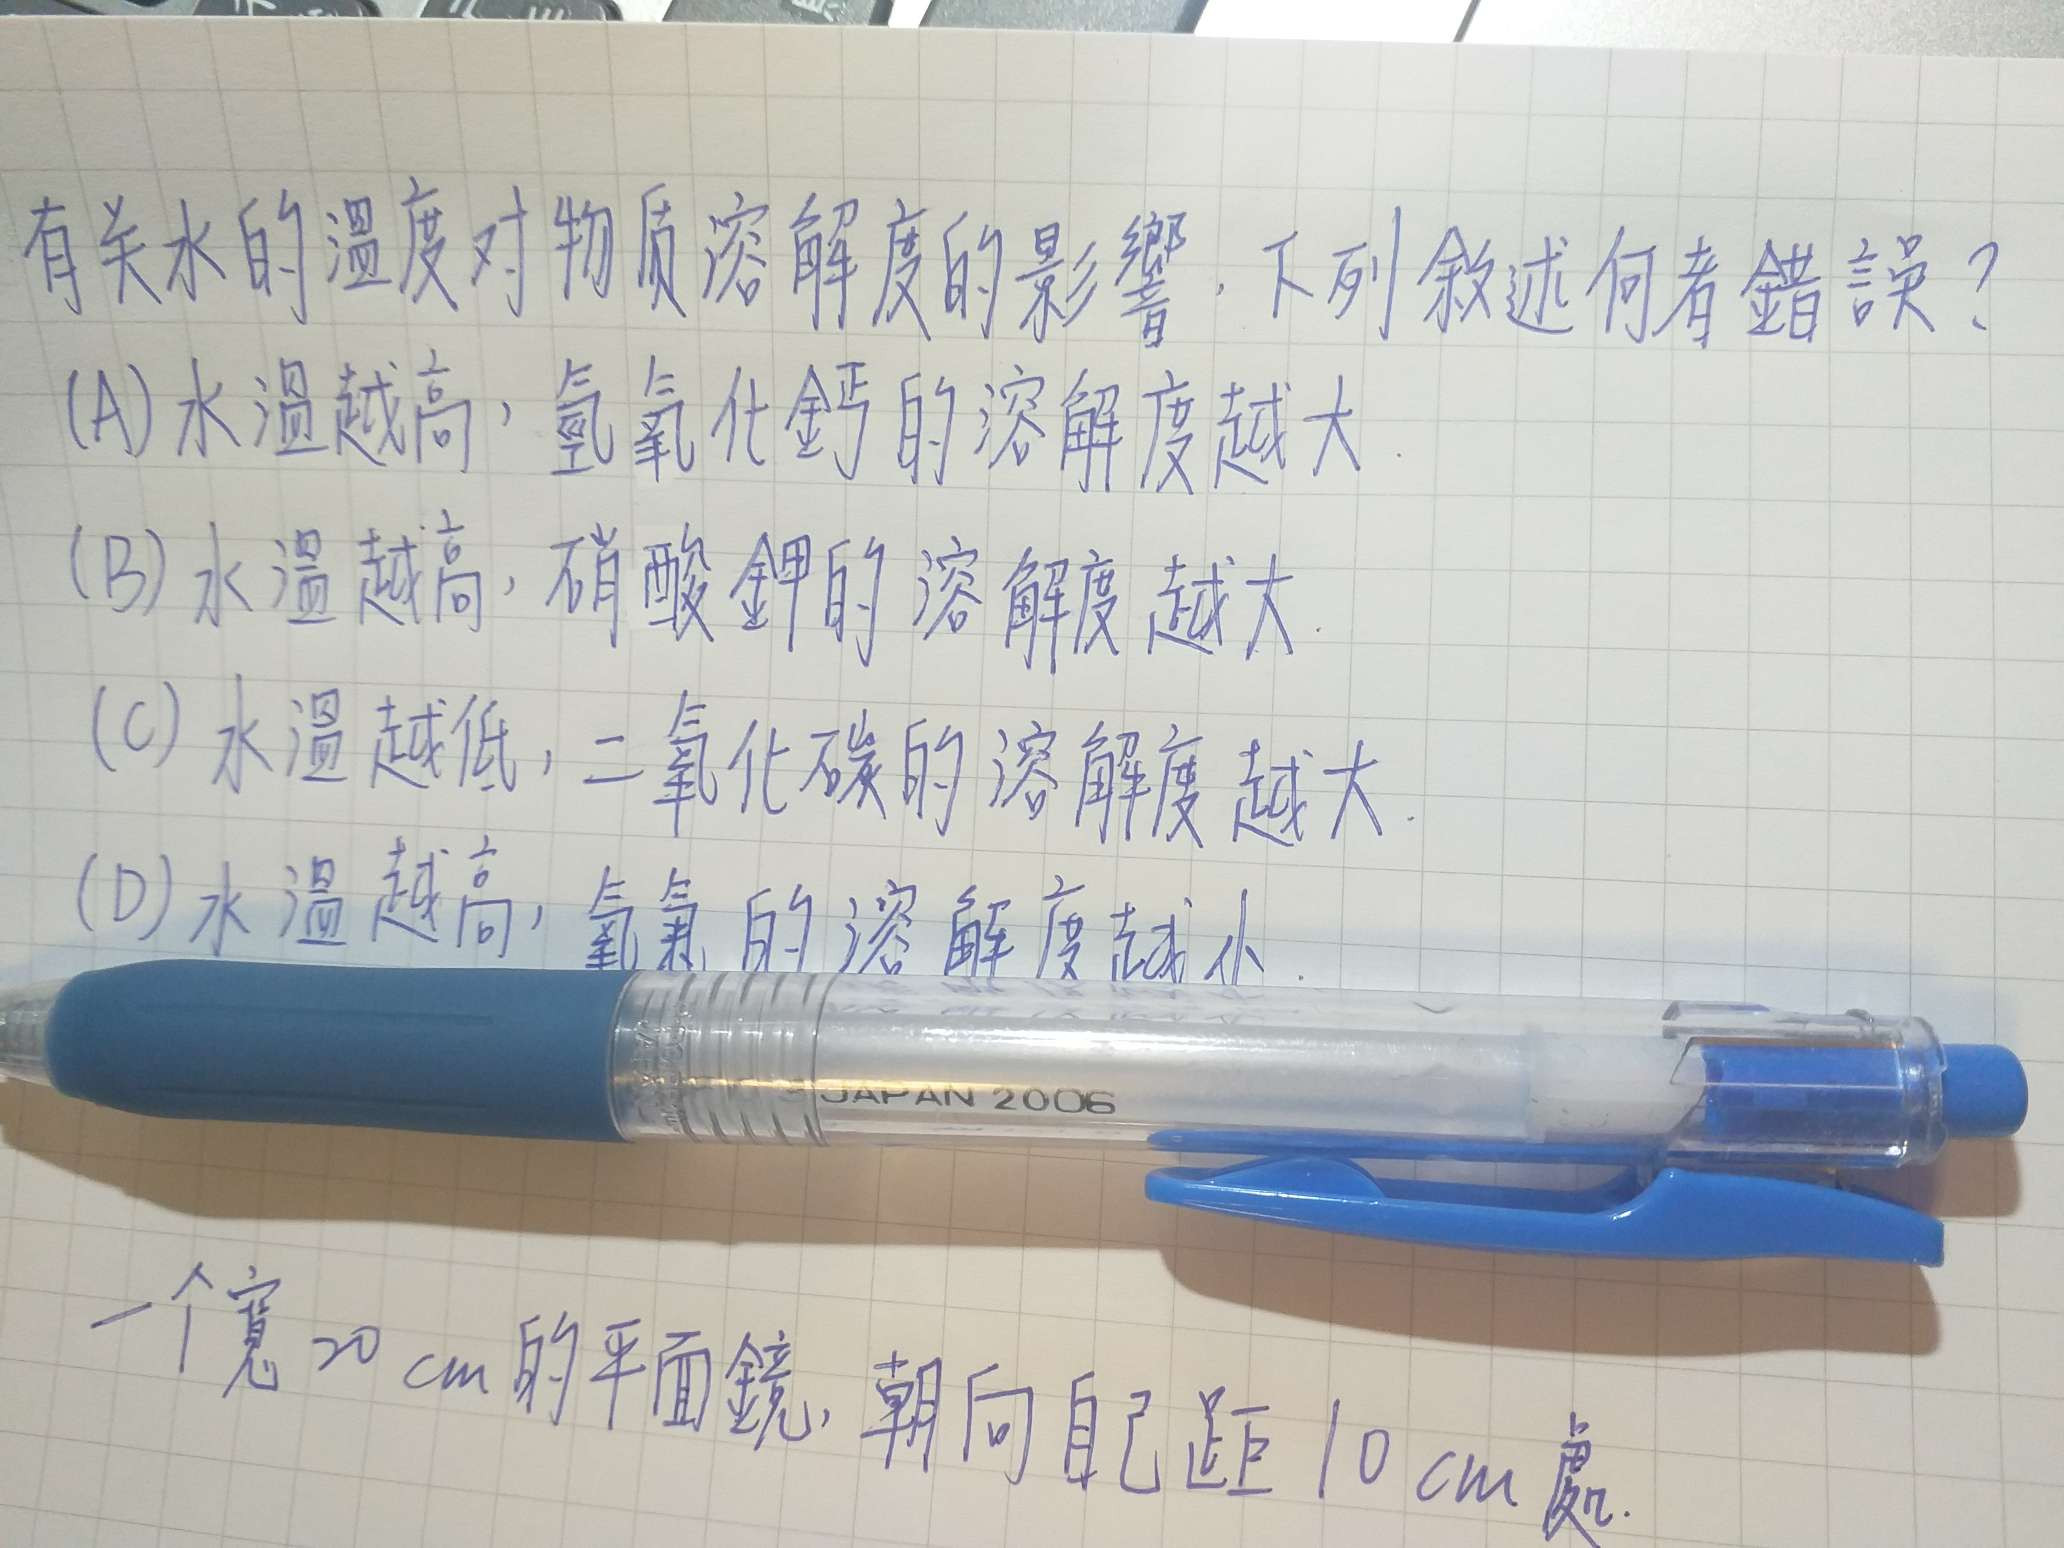 有关水的溫度对物质溶解度的影響，下列敘述何者錯誤？
(A) 水溫越高，氫氧化鈣的溶解度越大．
(B) 水溫越高，硝酸鉀的溶解度越大．
(C) 水溫越低，二氧化碳的溶解度越大．
(D) 水溫越高，的溶解度越小．
JAPAN 2006
一个寬20cm的平面鏡，朝向自己距10cm處．